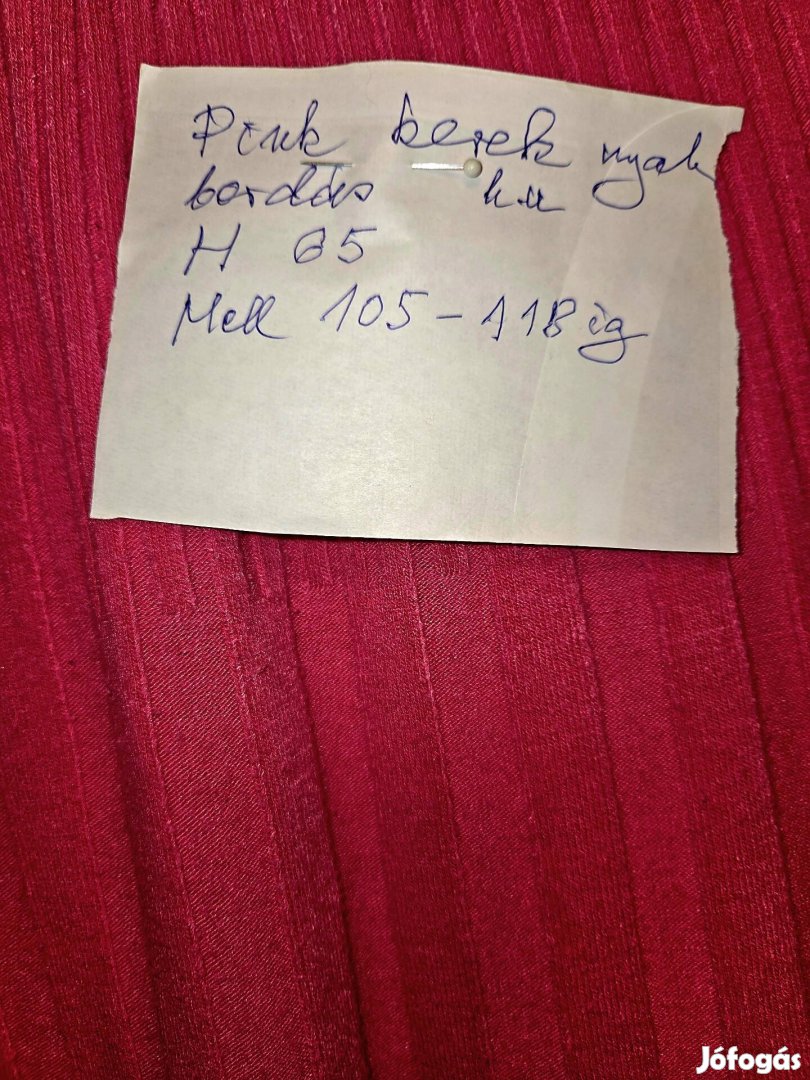 Pink kerek nyak
bordás h.u
H 65
Mell 105-118ig
Jófogás